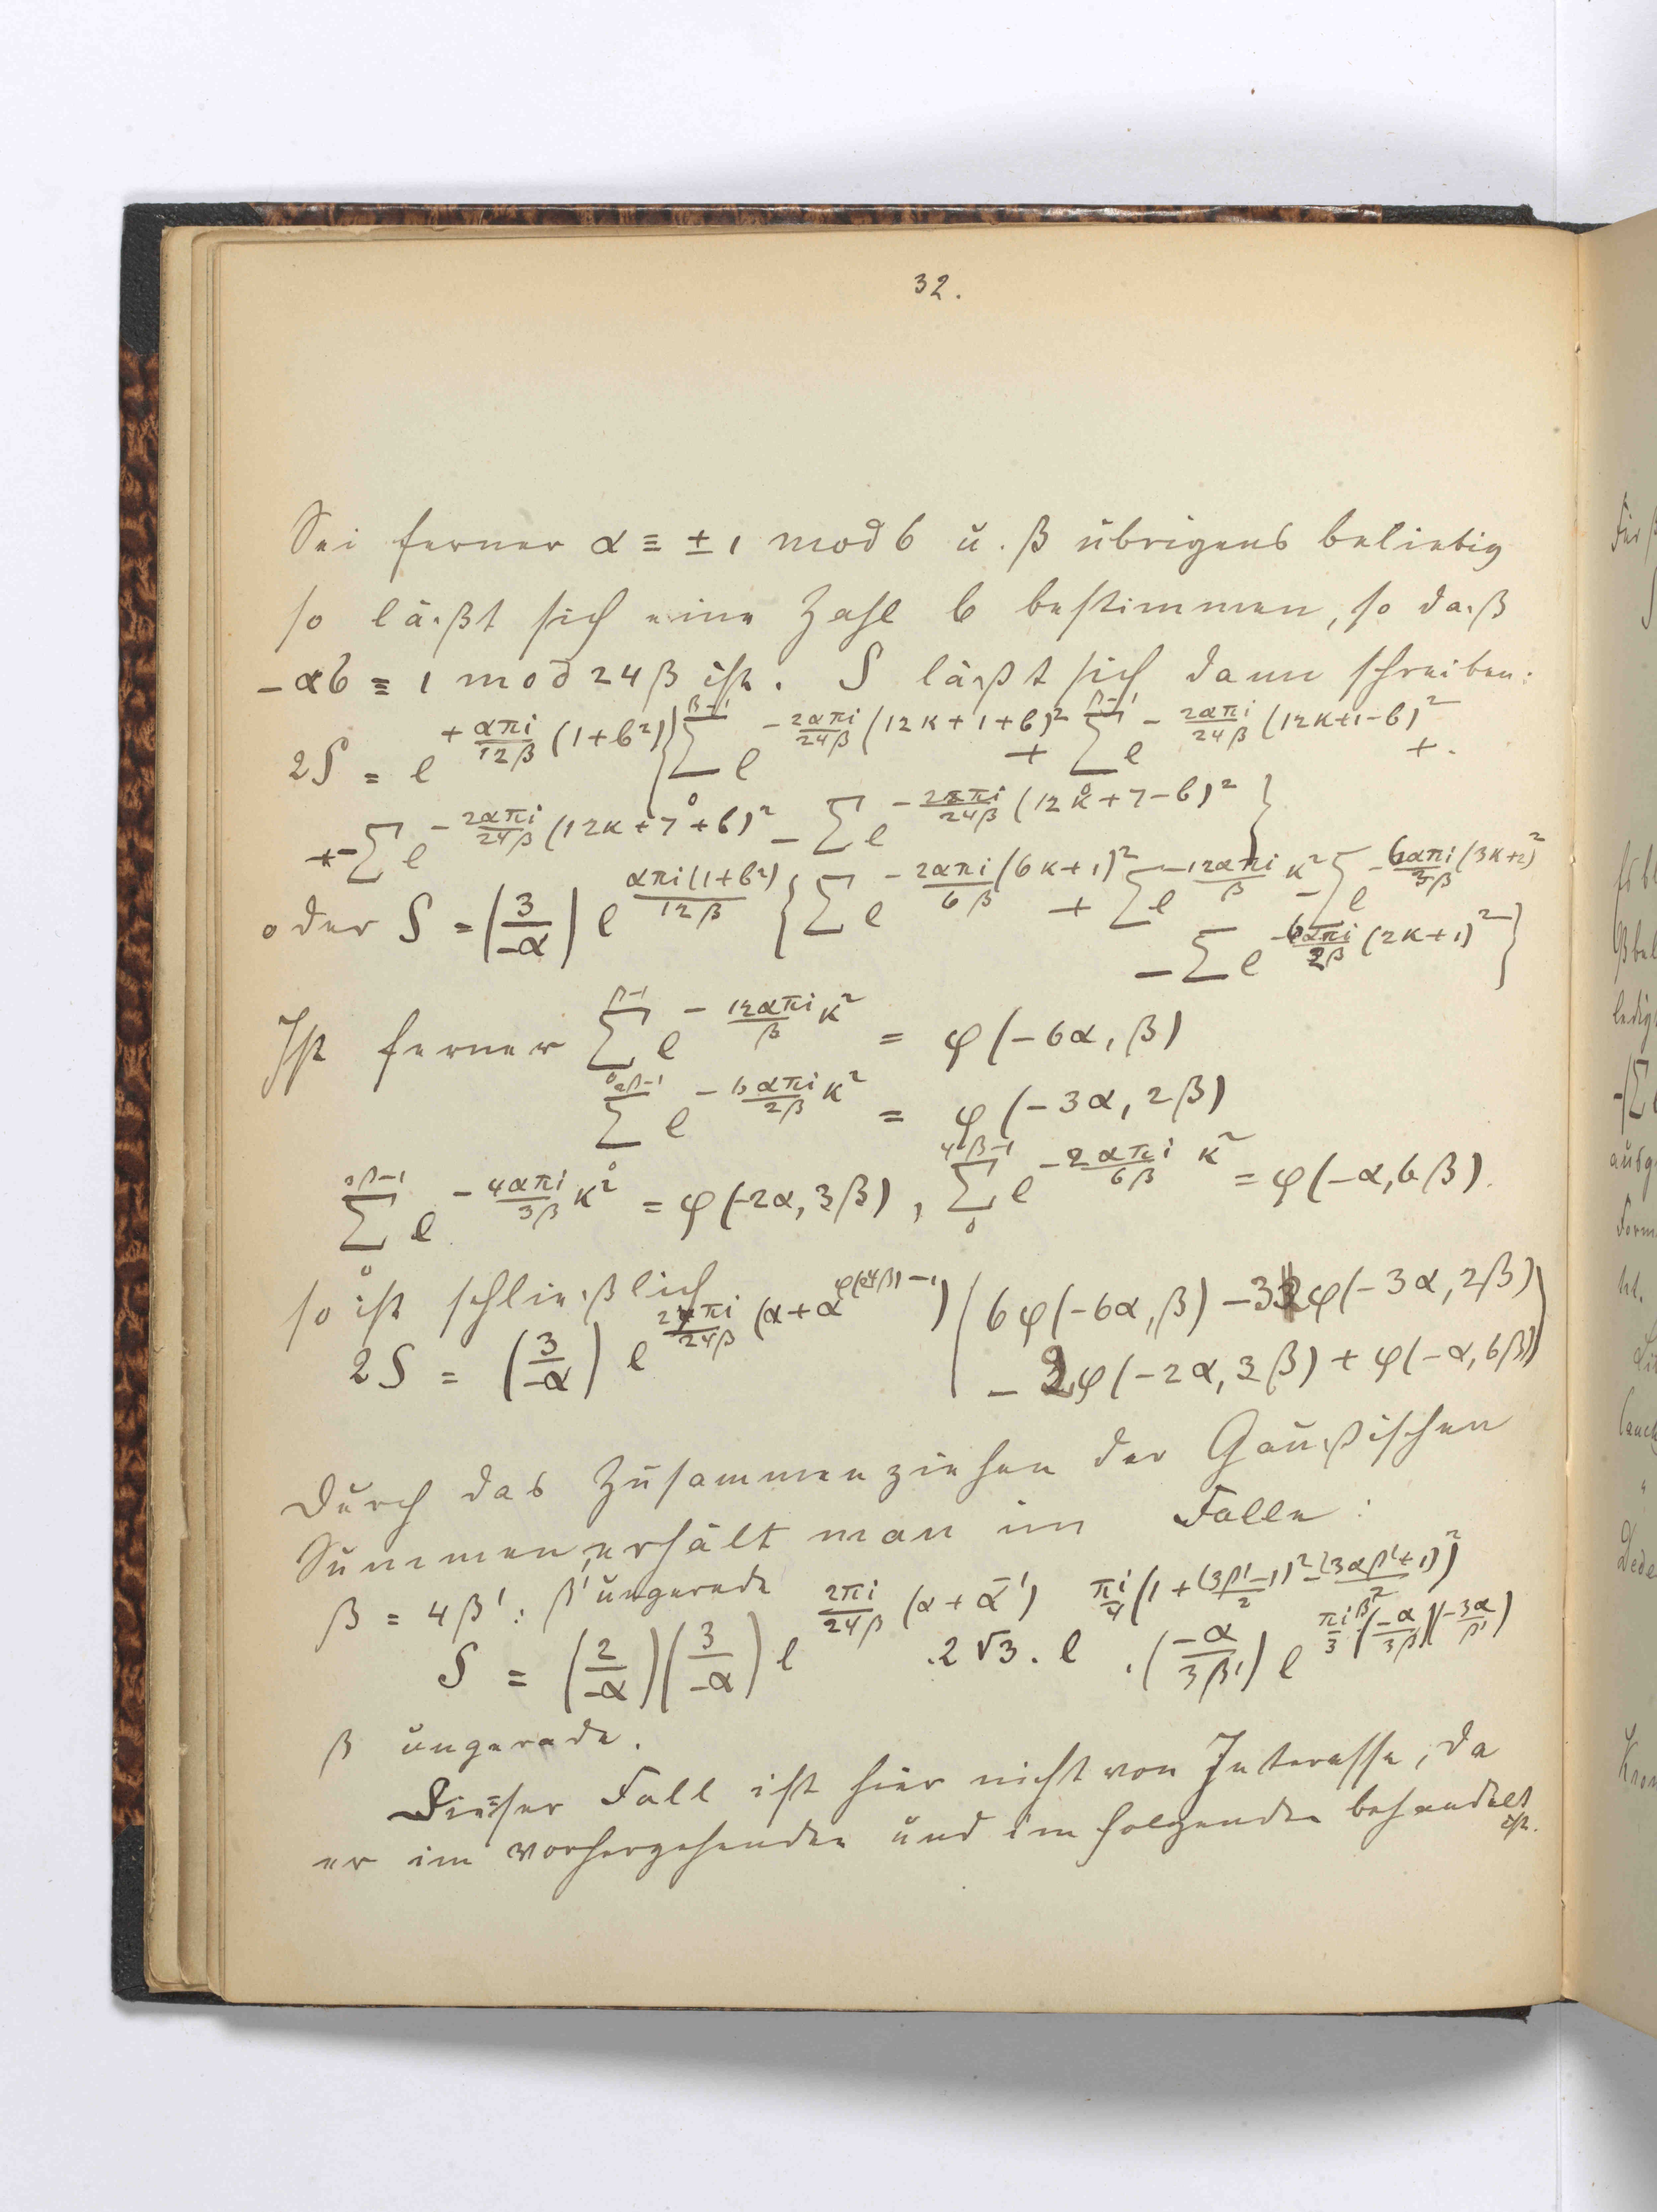 32.
Sei ferner α ≡ ± 1 mod 6 u. β übrigens beliebig
so läßt sich eine Zahl b bestimmen, so daß
-αb ≡ 1 mod 24β ist. S läßt sich dann schreiben:
2S = e^{+\frac{απi}{12β}(1+b²)} { \sum_0^{β-1} e^{-\frac{2απi}{24β}(12κ+1+b)²} + \sum_0^{β-1} e^{-\frac{2απi}{24β}(12κ+1-b)²} +.
- \sum e^{-\frac{2απi}{24β}(12κ+7+b)²} - \sum e^{-\frac{2απi}{24β}(12κ+7-b)²} }
oder S = (\frac{3}{-α}) e^{\frac{απi(1+b²)}{12β}} { \sum e^{-\frac{2απi}{6β}(6κ+1)²} + \sum e^{-\frac{12απi}{β}κ²} - \sum e^{-\frac{6απi}{3β}(3κ+2)²}
- \sum e^{-\frac{6απi}{2β}(2κ+1)²} }
Ist ferner \sum_0^{β-1} e^{-\frac{12απi}{β}κ²} = φ(-6α, β)
\sum_0^{2β-1} e^{-\frac{6απi}{2β}κ²} = φ(-3α, 2β)
\sum_0^{3β-1} e^{-\frac{4απi}{3β}κ²} = φ(-2α, 3β), \sum_0^{4β-1} e^{-\frac{2απi}{6β}κ²} = φ(-α, 6β).
so ist schließlich
2S = (\frac{3}{-α}) e^{\frac{2πi}{24β}(α+α^{φ(24β)-1})} ( 6φ(-6α, β) - 3φ(-3α, 2β)
- 2φ(-2α, 3β) + φ(-α, 6β) )
Durch das Zusammenziehen der Gaußischen
Summen, erhält man im Falle:
β = 4β': β' ungerade
S = (\frac{2}{-α})(\frac{3}{-α}) e^{\frac{2πi}{24β}(α+α^{-1})} . 2√3 . e^{\frac{πi}{4}(1+\frac{(3β'-1)²-(3αβ'+1)²}{2})} . (\frac{-α}{3β'}) e^{\frac{πi}{3}β²(\frac{-α}{3β})(\frac{-3α}{β'})}
β ungerade.
Dieser Fall ist hier nicht von Interesse, da
er im vorhergehenden und im folgenden behandelt
ist.